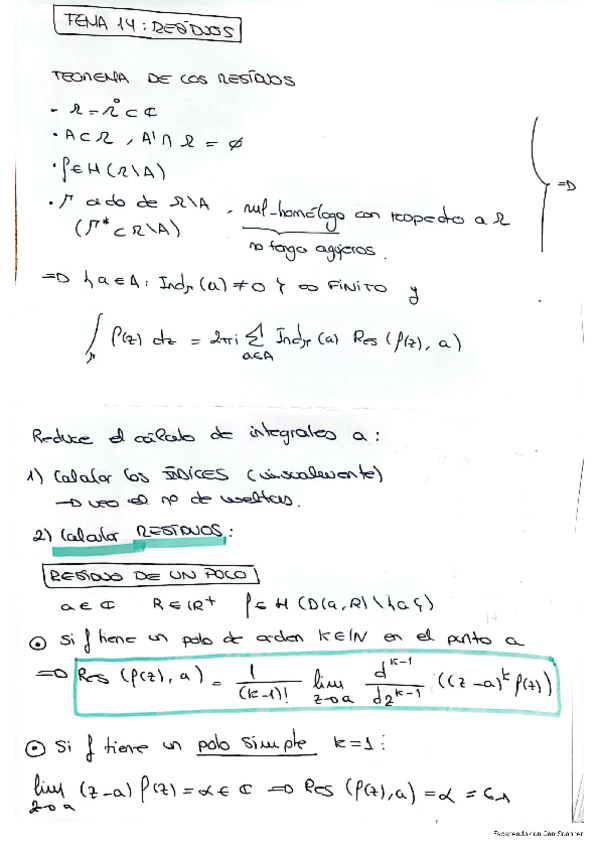 TEMA 14: RESÍDUOS
TEOREMA DE LOS RESÍDUOS
- Ω = Ω° ⊂ ℂ
· A ⊂ Ω, A' ∩ Ω = ∅
· f ∈ H(Ω\A)
· Γ ciclo de Ω\A, nul-homólogo con respecto a Ω
(Γ* ⊂ Ω\A)
no tenga agujeros.
=>
=> {a ∈ A: Ind_Γ(a) ≠ 0} es FINITO y
∫_Γ f(z) dz = 2πi ∑_{a∈A} Ind_Γ(a) Res(f(z), a)
Reduce el cálculo de integrales a:
1) Calcular los ÍNDICES (visualmente)
→ veo el nº de vueltas.
2) Calcular RESÍDUOS:
RESÍDUO DE UN POLO
a ∈ ℂ R ∈ ℝ⁺ f ∈ H(D(a,R)\{a})
⊙ Si f tiene un polo de orden k ∈ ℕ en el punto a
=> Res(f(z), a) = 1/(k-1)! lim_{z→a} d^{k-1}/dz^{k-1} ((z-a)^k f(z))
⊙ Si f tiene un polo simple k=1:
lim_{z→a} (z-a) f(z) = α ∈ ℂ => Res(f(z), a) = α = c₋₁
Escaneado con CamScanner